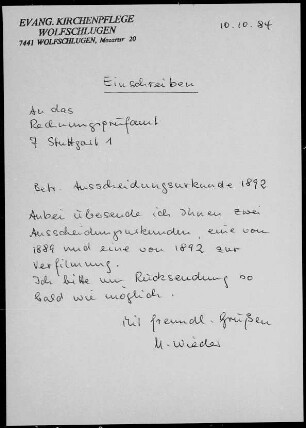 EVANG. KIRCHENPFLEGE
WOLFSCHLUGEN
7441 WOLFSCHLUGEN, Mozartstr 20
10.10.84
Einschreiben
An das
Rechnungsprüfamt
7 Stuttgart 1
Betr. Ausscheidungsurkunde 1892
Anbei übersende ich Ihnen zwei
Ausscheidungsurkunden, eine von
1889 und eine von 1892 zur
Verfilmung.
Ich bitte um Rücksendung so
bald wie möglich.
Mit freundl. Grüßen
M. Wieder